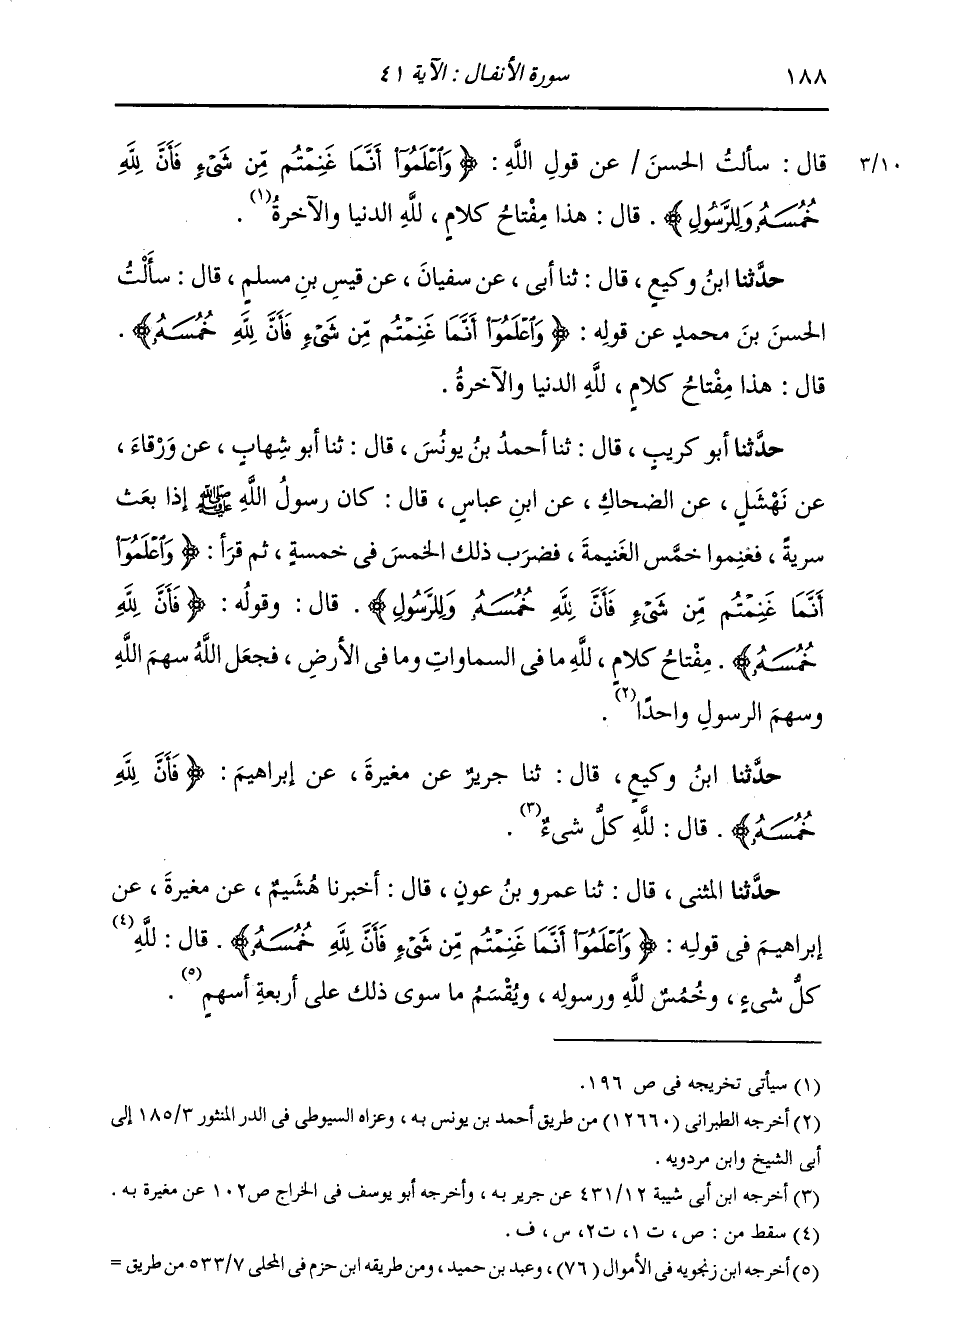 ١٨٨ سورة الأنفال : الآية ٤١
٣/١٠ قال : سألتُ الحسنَ / عن قولِ اللَّهِ : ﴿ وَٱعْلَمُوٓا۟ أَنَّمَا غَنِمْتُم مِّن شَىْءٍ فَأَنَّ لِلَّهِ
خُمُسَهُۥ وَلِلرَّسُولِ ﴾ . قال : هذا مِفْتاحُ كلامٍ ، للَّهِ الدنيا والآخرةُ(١) .
حدَّثنا ابنُ وكيعٍ ، قال : ثنا أبى ، عن سفيانَ ، عن قيسِ بنِ مسلمٍ ، قال : سأَلْتُ
الحسنَ بنَ محمدٍ عن قولِه : ﴿ وَٱعْلَمُوٓا۟ أَنَّمَا غَنِمْتُم مِّن شَىْءٍ فَأَنَّ لِلَّهِ خُمُسَهُۥ ﴾ .
قال : هذا مِفْتاحُ كلامٍ ، للَّهِ الدنيا والآخرةُ .
حدَّثنا أبو كريبٍ ، قال : ثنا أحمدُ بنُ يونُسَ ، قال : ثنا أبو شِهابٍ ، عن وَرْقاءَ ،
عن نَهْشَلٍ ، عن الضحاكِ ، عن ابنِ عباسٍ ، قال : كان رسولُ اللَّهِ ﷺ إذا بعَث
سريةً ، فغنِموا خمَّس الغَنيمةَ ، فضرَب ذلك الخمسَ فى خمسةٍ ، ثم قرَأ : ﴿ وَٱعْلَمُوٓا۟
أَنَّمَا غَنِمْتُم مِّن شَىْءٍ فَأَنَّ لِلَّهِ خُمُسَهُۥ وَلِلرَّسُولِ ﴾ . قال : وقولُه : ﴿ فَأَنَّ لِلَّهِ
خُمُسَهُۥ ﴾ . مِفْتاحُ كلامٍ ، للَّهِ ما فى السماواتِ وما فى الأرضِ ، فجعَل اللَّهُ سهمَ اللَّهِ
وسهمَ الرسولِ واحدًا(٢) .
حدَّثنا ابنُ وكيعٍ ، قال : ثنا جريرٌ عن مغيرةَ ، عن إبراهيمَ : ﴿ فَأَنَّ لِلَّهِ
خُمُسَهُۥ ﴾ . قال : للَّهِ كلُّ شىءٌ(٣) .
حدَّثنا المثنى ، قال : ثنا عمرو بنُ عونٍ ، قال : أخبرنا هُشَيمٌ ، عن مغيرةَ ، عن
إبراهيمَ فى قولِه : ﴿ وَٱعْلَمُوٓا۟ أَنَّمَا غَنِمْتُم مِّن شَىْءٍ فَأَنَّ لِلَّهِ خُمُسَهُۥ ﴾ . قال : للَّهِ(٤)
كلُّ شىءٍ ، وخُمُسٌ للَّهِ ورسولِه ، ويُقْسَمُ ما سوى ذلك على أربعةِ أسهمٍ(٥) .
(١) سيأتى تخريجه فى ص ١٩٦.
(٢) أخرجه الطبرانى (١٢٦٦٠) من طريق أحمد بن يونس به ، وعزاه السيوطى فى الدر المنثور ١٨٥/٣ إلى
أبى الشيخ وابن مردويه .
(٣) أخرجه ابن أبى شيبة ٤٣١/١٢ عن جرير به ، وأخرجه أبو يوسف فى الخراج ص١٠٢ عن مغيرة به .
(٤) سقط من : ص ، ت ١، ت٢، س ، ف .
(٥) أخرجه ابن زنجويه فى الأموال (٧٦) ، وعبد بن حميد ، ومن طريقه ابن حزم فى المحلى ٥٣٣/٧ من طريق =